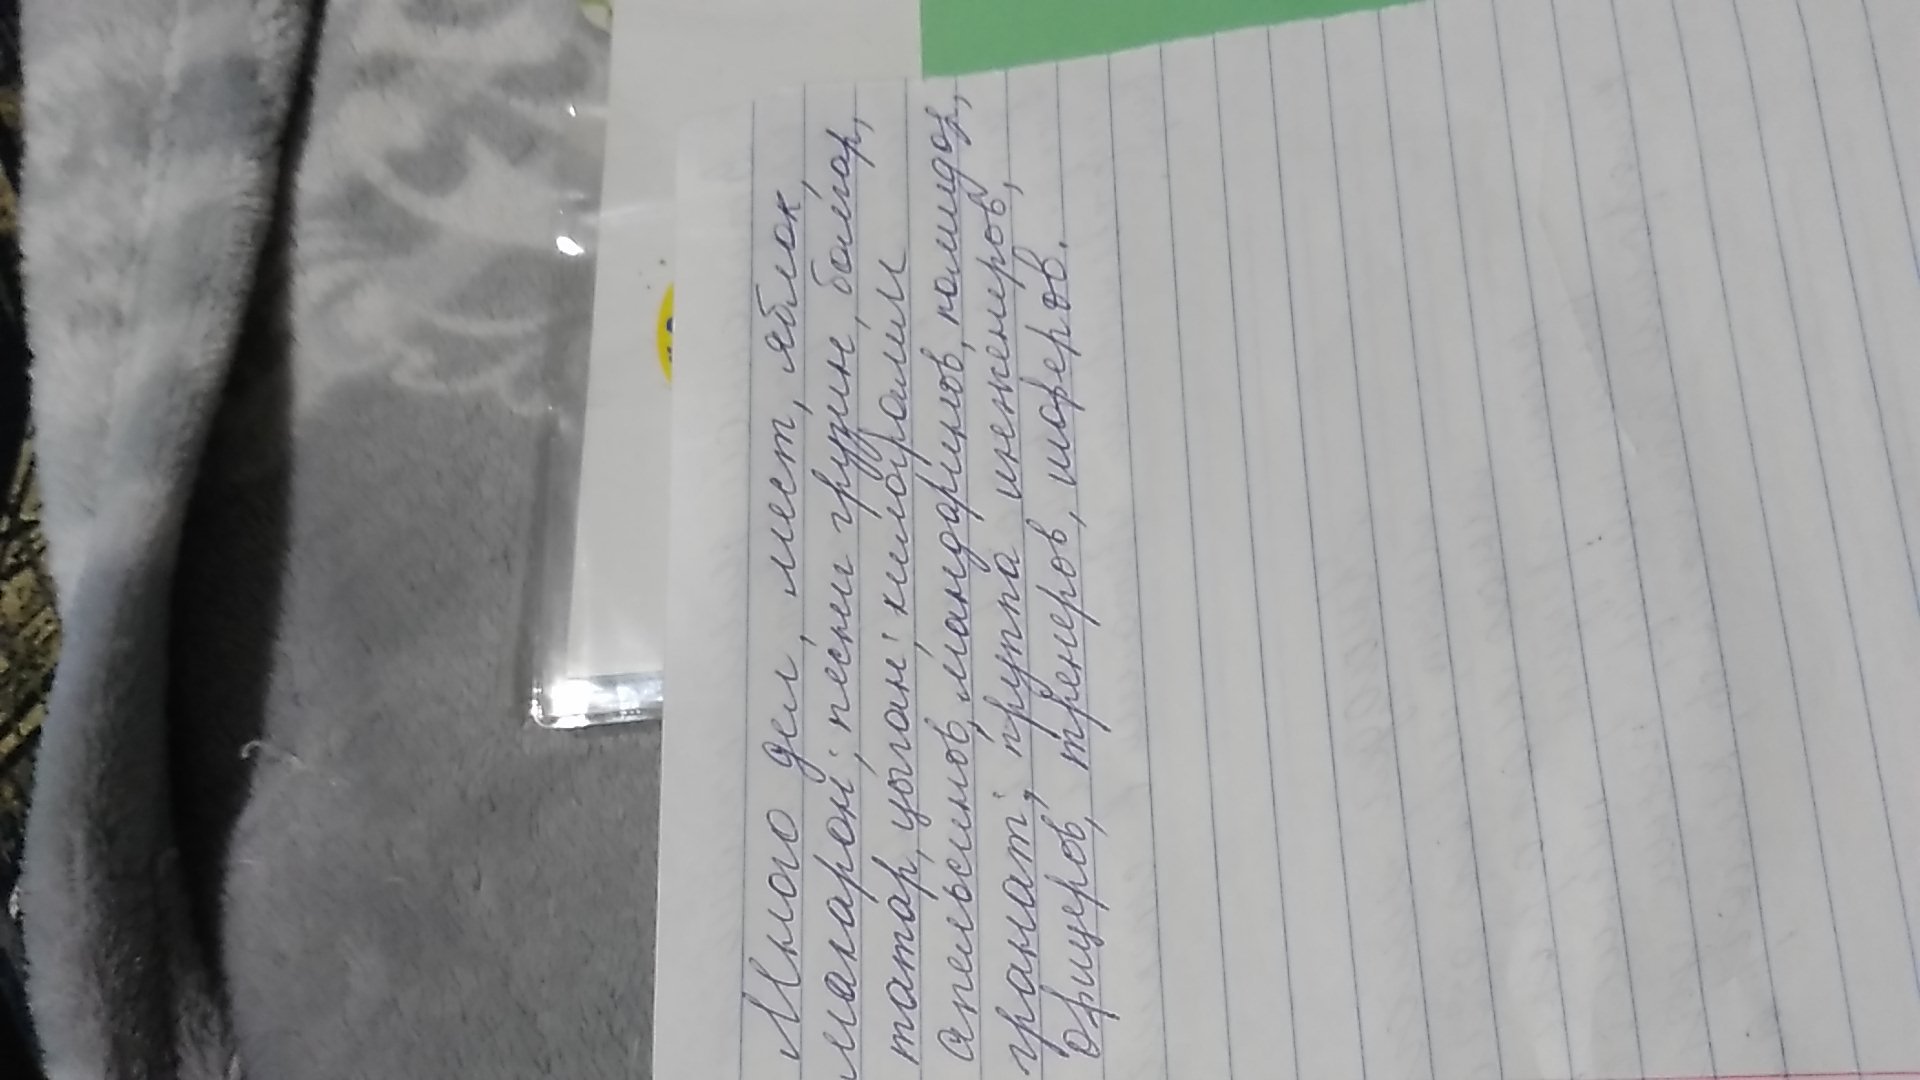 Много дел, мест, яблок,
макарон; песни грузин, болгар,
татар, цыган; килограмм
апельсинов, мандаринов, помидор,
гранат; группа инженеров,
офицеров, тренеров, шоферов.